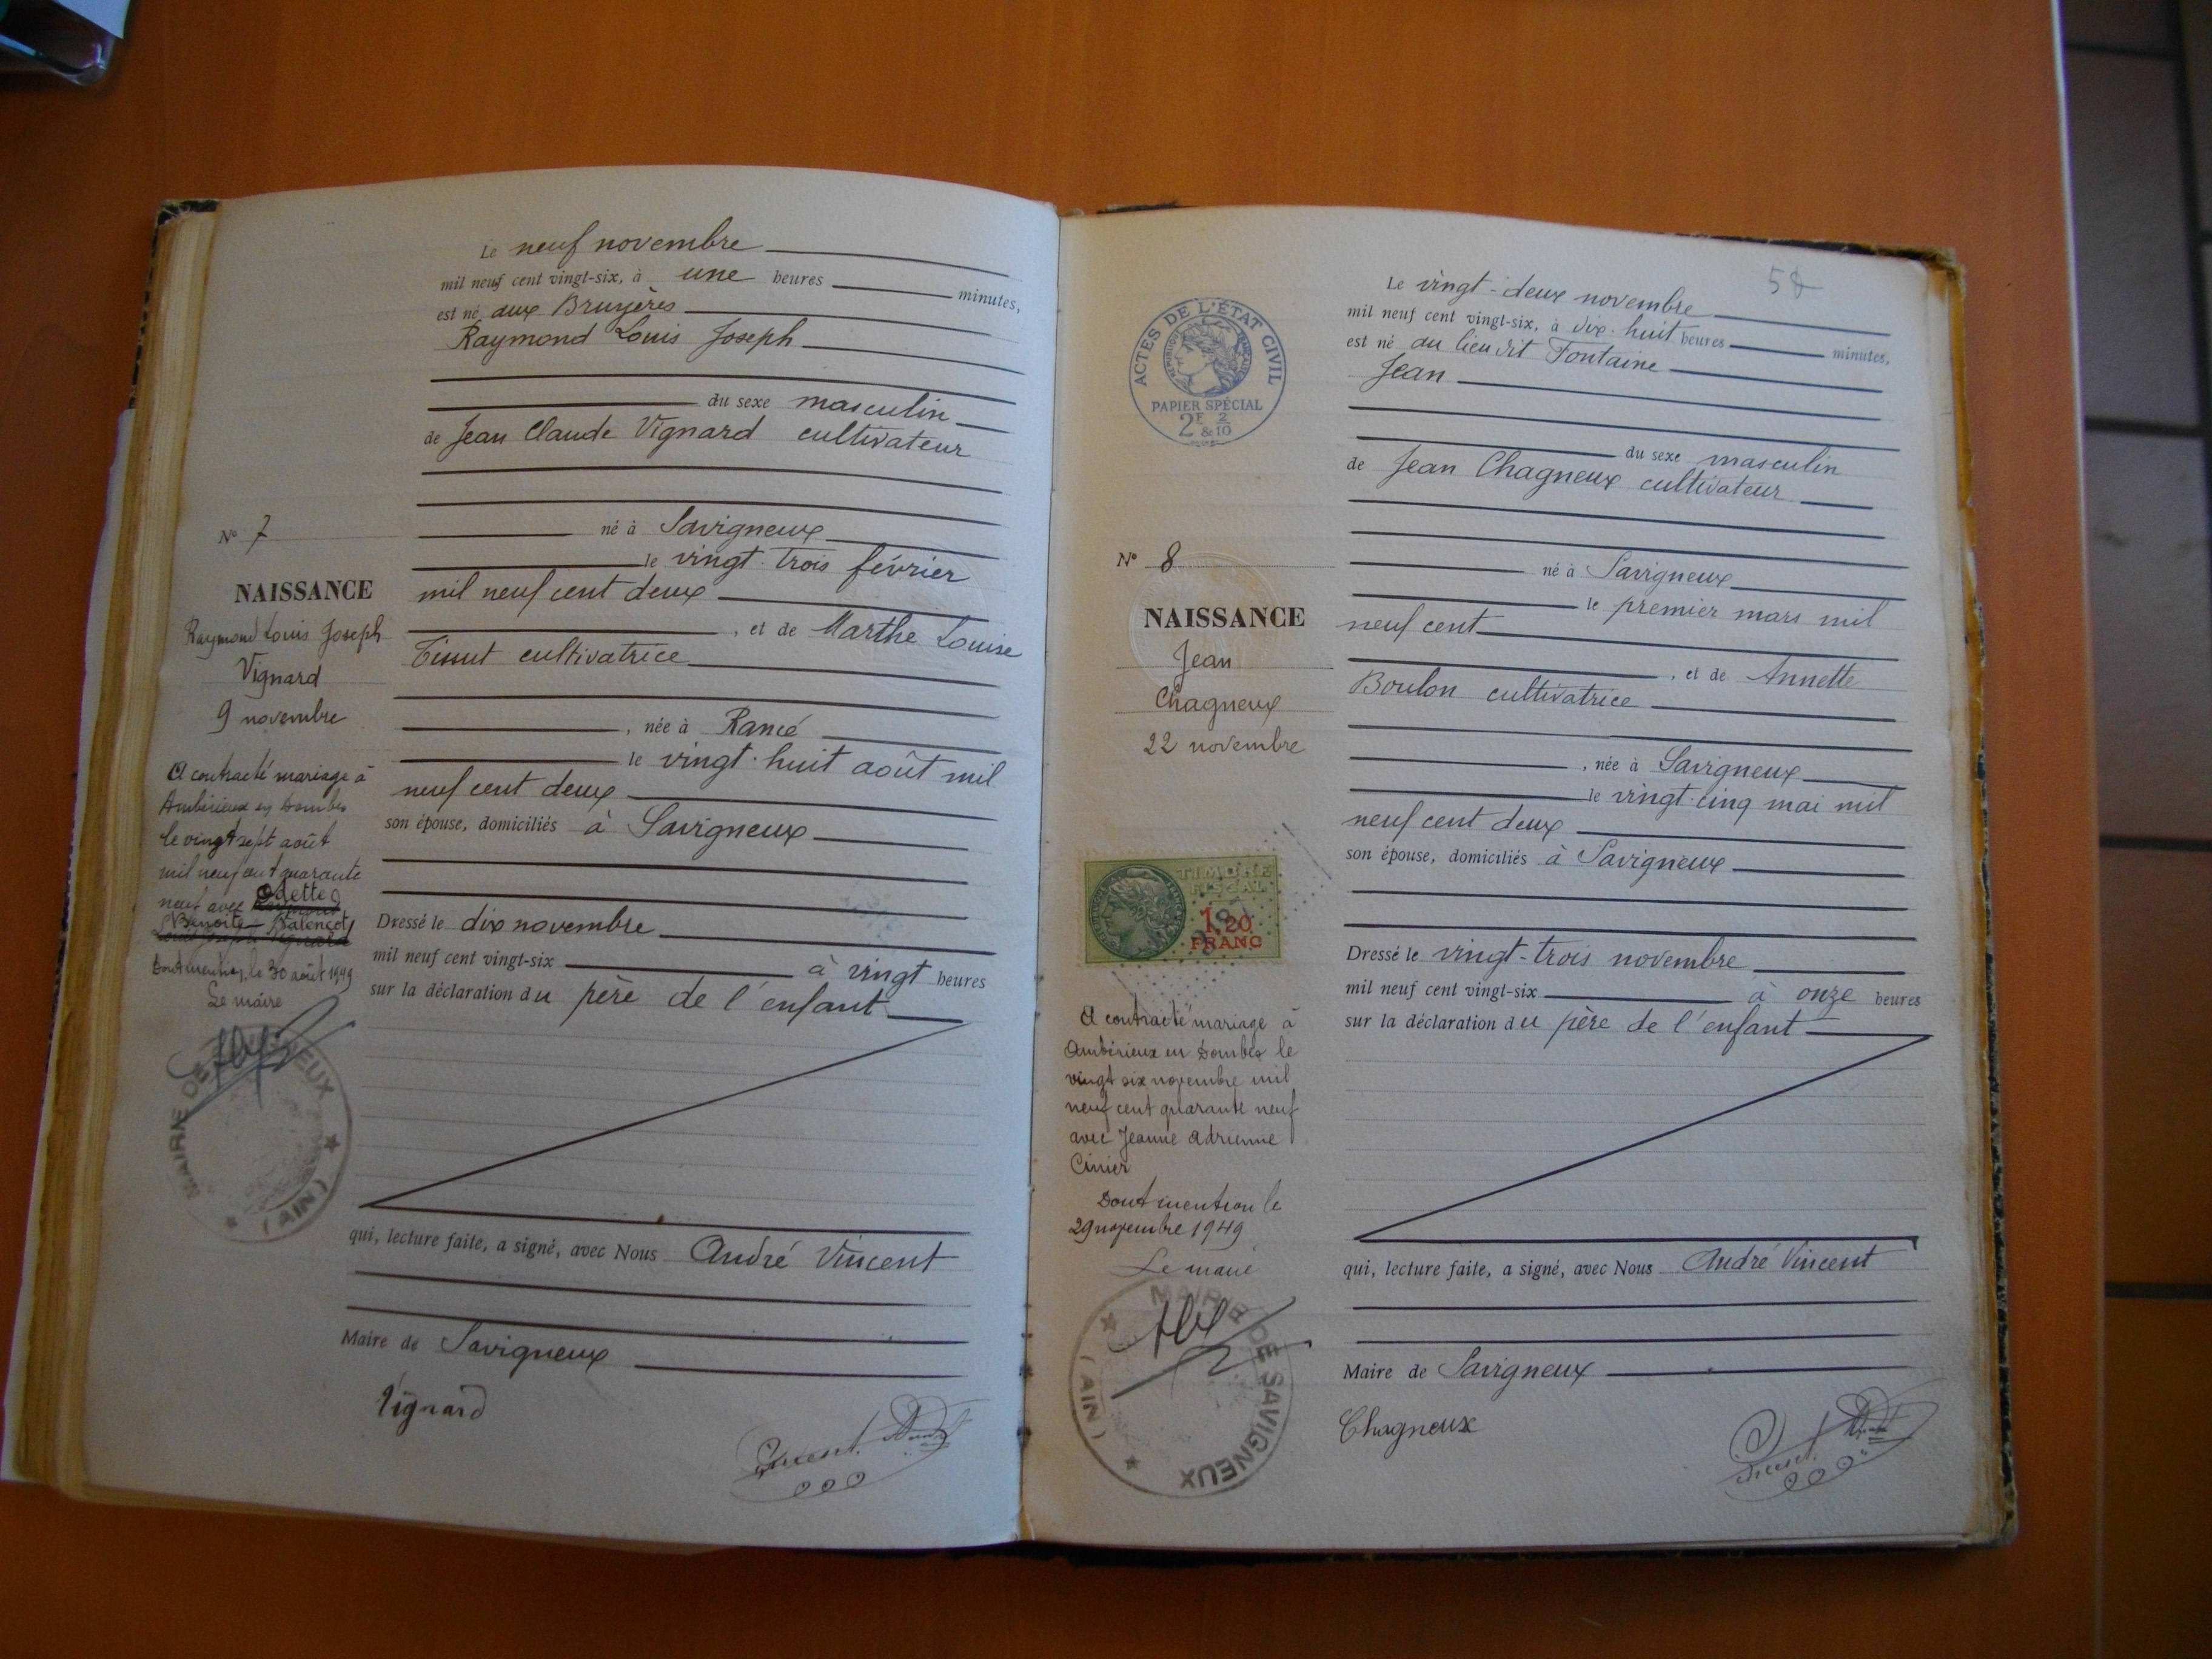 Le neuf novembre
mil neuf cent vingt-six, à une heures minutes,
est né aux Bruyères
Raymond Louis Joseph
du sexe masculin
de Jean Claude Vignard cultivateur
né à Savigneux
le vingt-trois février
mil neuf cent deux
, et de Marthe Louise
cultivatrice
, née à Rancé
le vingt-huit août mil
neuf cent deux
son épouse, domiciliés à Savigneux
Dressé le dix novembre
mil neuf cent vingt-six à vingt heures
sur la déclaration du père de l'enfant
qui, lecture faite, a signé, avec Nous André Vincent
Maire de Savigneux
Vignard
Vincent
N° 7
NAISSANCE
Raymond Louis Joseph
Vignard
9 novembre
A contracté mariage à
Ambérieux en Dombes
le vingt sept août
mil neuf cent quarante
neuf avec Odette
Benoite
Dont mention, le 30 août 1949
Le maire
MAIRIE DE SAVIGNEUX
(AIN)
58
Le vingt-deux novembre
mil neuf cent vingt-six, à dix-huit heures minutes,
est né au lieu dit Fontaine
Jean
du sexe masculin
de Jean Chagneux cultivateur
né à Savigneux
le premier mars mil
neuf cent
, et de Annette
Boulon cultivatrice
, née à Savigneux
le vingt-cinq mai mil
neuf cent deux
son épouse, domiciliés à Savigneux
Dressé le vingt-trois novembre
mil neuf cent vingt-six à onze heures
sur la déclaration du père de l'enfant
qui, lecture faite, a signé, avec Nous André Vincent
Maire de Savigneux
Chagneux
Vincent
ACTES DE L'ÉTAT CIVIL
PAPIER SPÉCIAL
2F & 2/10
N° 8
NAISSANCE
Jean
Chagneux
22 novembre
TIMBRE
FISCAL
1,20
FRANC
A contracté mariage à
Ambérieux en Dombes le
vingt six novembre mil
neuf cent quarante neuf
avec Jeanne Adrienne
Cinier
Dont mention le
29 novembre 1949
Le maire
MAIRIE DE SAVIGNEUX
(AIN)